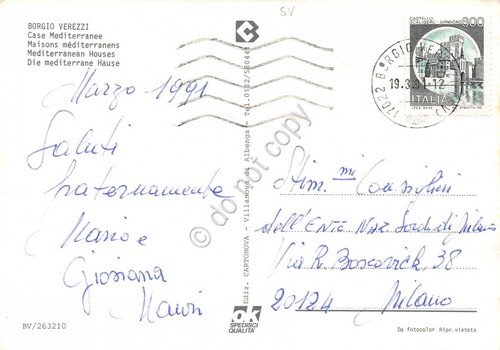 BORGIO VEREZZI
Case Mediterranee
Maisons méditerranens
Mediterranean Houses
Die mediterrane Hause
SV
Marzo 1991
Saluti
fraternamente
Mario e
Giosiana
Mauri
BV/263210
Ediz. CARTONOVA - Villanova di Albenga - Tel.0182/580441
ok
SPEDISCI
QUALITÀ
800
ITALIA
17022 BORGIO VE
19.3.91-12
Stim.mi Consiglieri
dell'Ente Naz Sordi di Milano
Via R. Boscovich 38
20124 Milano
Da fotocolor Ripr. vietata
do not copy